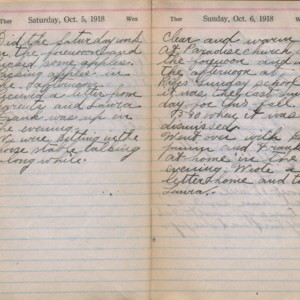 Ther Saturday, Oct. 5, 1918 Wea
Did the Saturday work
in the forenoon and
picked some apples.
apples in
the afternoon
letter from
parents and Laura
Frank was up in
the evening.
We were sitting in the
talking
a long while.
Ther Sunday, Oct. 6, 1918 Wea
Clear and warm
At Paradise church in
the forenoon and in
the afternoon at
Sunday school
it was the
day for this fall
when it was
dismissed
Went over with
and Frank
at home in the
evening. Wrote a
letter home and to
Laura.